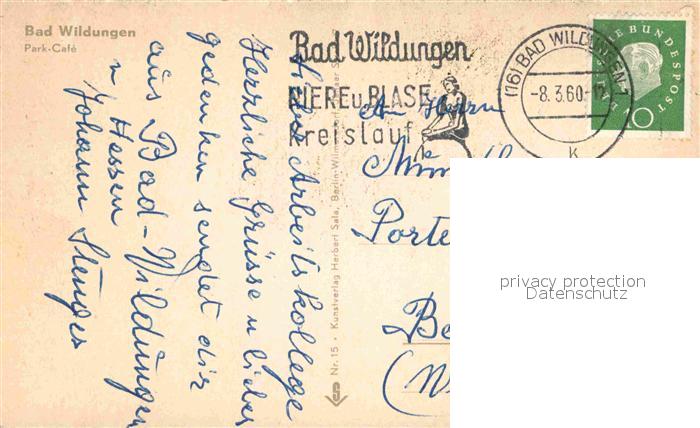 Bad Wildungen
Park-Café
Bad Wildungen
NIERE u. BLASE
Kreislauf
(16) BAD WILDUNGEN 1
-8. 3. 60.-12
k
DEUTSCHE BUNDESPOST
10
Lieber Arbeitskollege
Herzliche Grüsse u lieber
gedenken sendet dir
aus Bad-Wildungen
n/ Hessen
Johann Stenges
An Herrn
Porte
Be
(W
Nr. 15 • Kunstverlag Herbert Sala, Berlin-Wil
privacy protection
Datenschutz